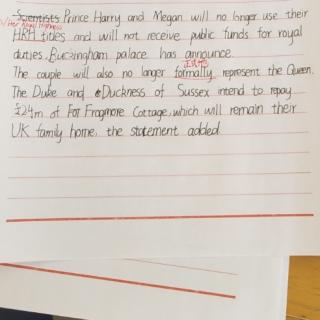 Scientists Prince Harry and Megan will no longer use their
Her Royal Highness
HRH titles and will not receive public funds for royal
duties. Buckingham palace has announce.
正式地
The couple will also no longer formally represent the Queen.
The Duke and Duckness of Sussex intend to repay
£24m of For Fragmore Cottage, which will remain their
UK family home, the statement added